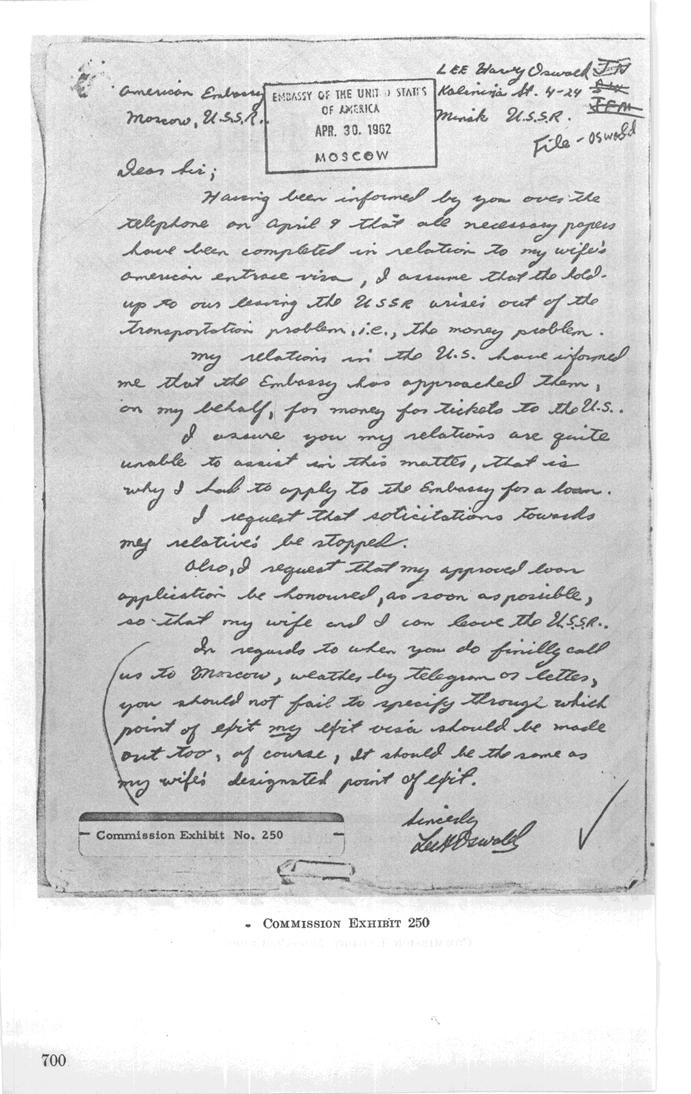 LEE Harvy Oswald
Kalinina St. 4-24
Minsk U.S.S.R.
File - Oswald
American Embassy
Moscow, U.S.S.R..
EMBASSY OF THE UNITED STATES
OF AMERICA
APR. 30. 1962
MOSCOW
Dear Sir;
Having been informed by you over the
telephone on April 9 that all necessary papers
have been completed in relation to my wife's
american entrace visa, I assume that the hold-
up to our leaving the USSR arises out of the
transportation problem, i.e., the money problem.
My relations in the U.S. have informed
me that the Embassy has approached them,
on my behalf, for money for tickets to the U.S..
I assure you my relations are quite
unable to assist in this matter, that is
why I had to apply to the Embassy for a loan.
I request that soticitations towards
my relative's be stopped.
Also, I request that my approved loan
application be honoured, as soon as possible,
so that my wife and I can leave the U.S.S.R..
In regards to when you do finilly call
us to Moscow, weather by telegram or letter,
you should not fail to specify through which
point of exit my exit visa should be made
out too, of course, It should be the same as
my wife's designated point of exit.
Sincerly
Lee H Oswald
Commission Exhibit No. 250
COMMISSION EXHIBIT 250
700